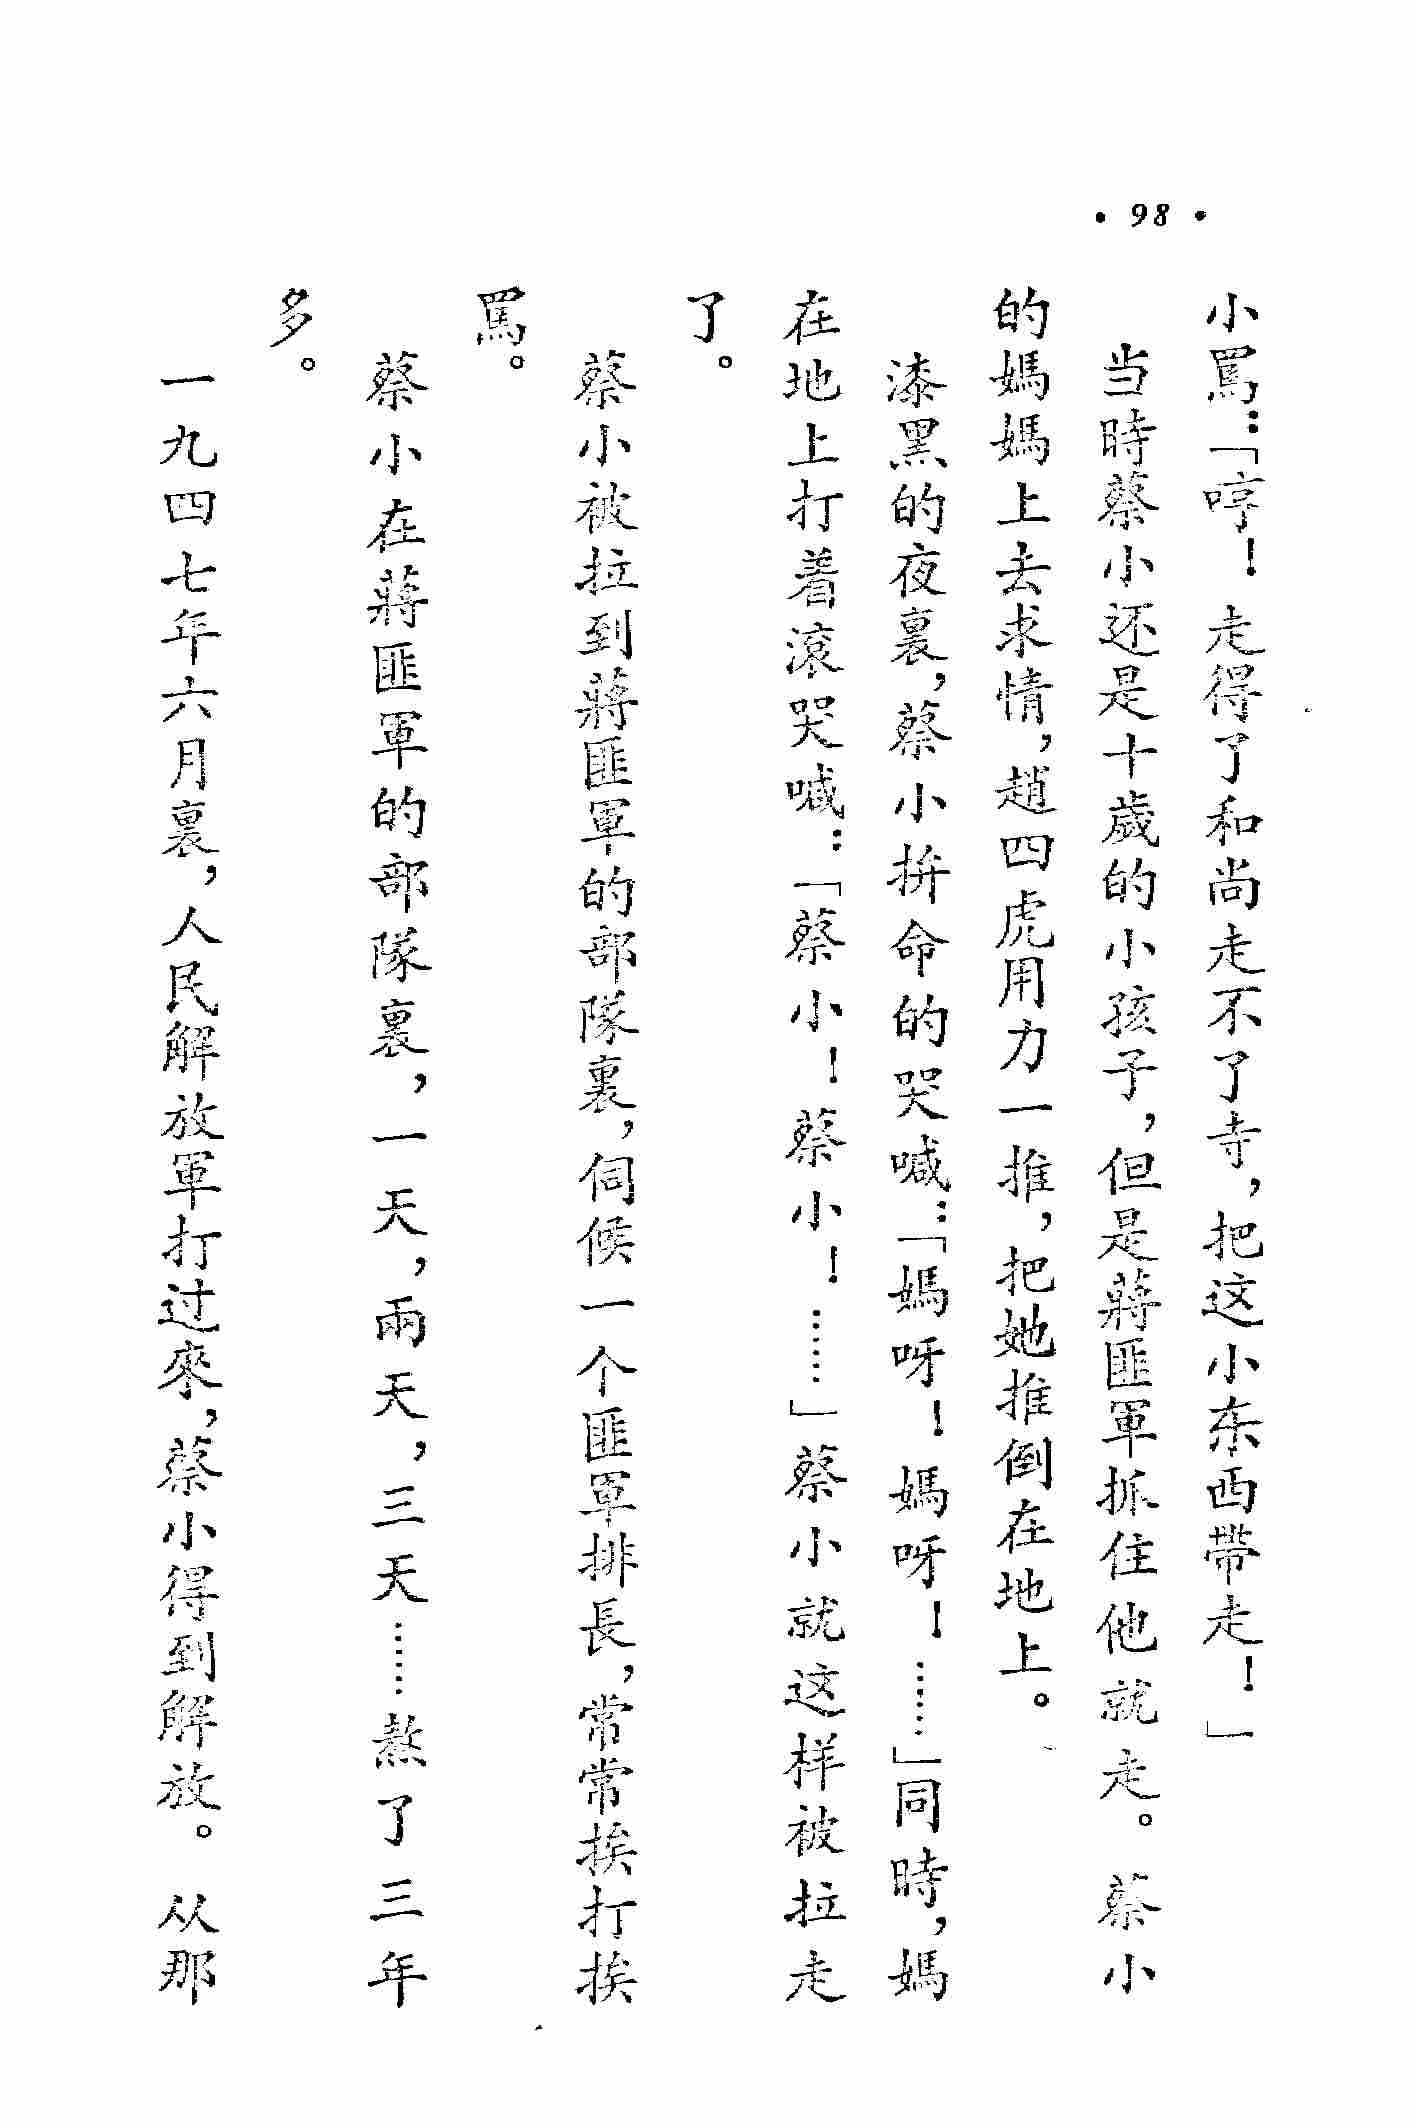 • 98 •
小罵：「哼！走得了和尚走不了寺，把这小东西帶走！」
当時蔡小还是十歲的小孩子，但是蔣匪軍抓住他就走。蔡小
的媽媽上去求情，趙四虎用力一推，把她推倒在地上。
漆黑的夜裏，蔡小拚命的哭喊：「媽呀！媽呀！……」同時，媽
在地上打着滚哭喊：「蔡小！蔡小！……」蔡小就这样被拉走
了。
蔡小被拉到蔣匪軍的部隊裏，伺候一个匪軍排長，常常挨打挨
罵。
蔡小在蔣匪軍的部隊裏，一天，兩天，三天……熬了三年
多。
一九四七年六月裏，人民解放軍打过來，蔡小得到解放。从那